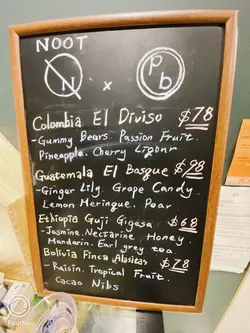 NOOT
N x Pb
Colombia El Diviso $78
- Gummy Bears. Passion Fruit.
Pineapple. Cherry Liqour
Guatemala El Bosque $98
- Ginger Lily. Grape Candy.
Lemon Meringue. Pear
Ethiopia Guji Gigesa $68
- Jasmine. Nectarine. Honey.
Mandarin. Earl grey tea
Bolivia Finca Alasitas $78
- Raisin. Tropical Fruit.
Cacao Nibs.
Foodie